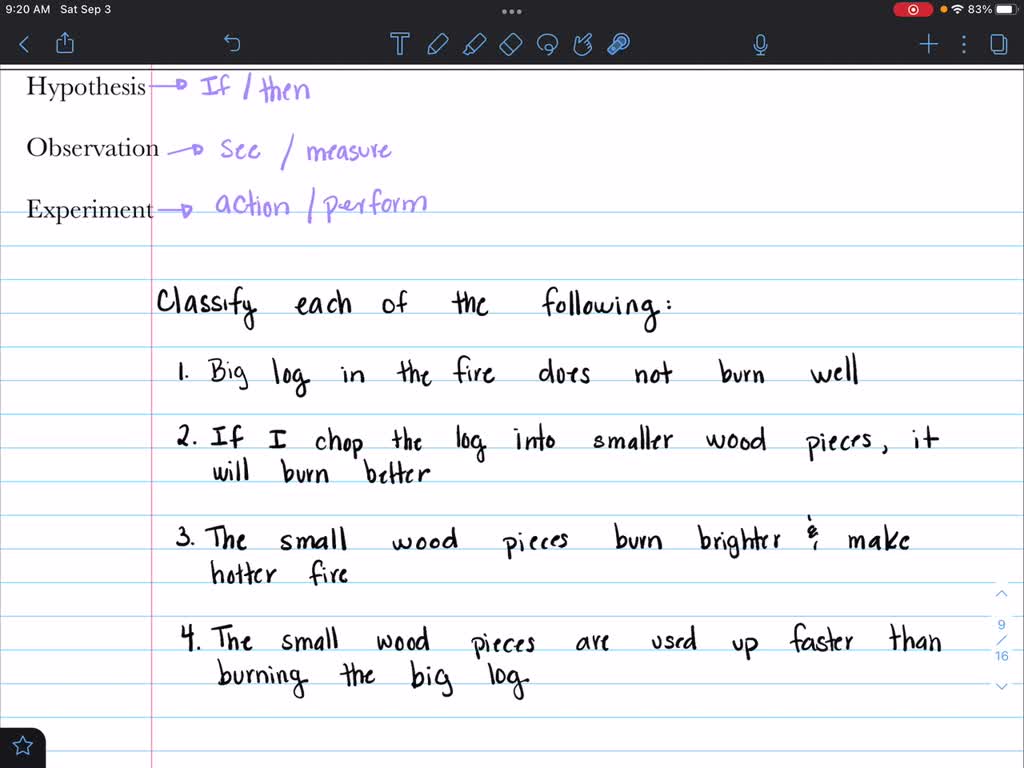 9:20 AM Sat Sep 3
83%
Hypothesis → If / then
Observation → see / measure
Experiment → action / perform
Classify each of the following:
1. Big log in the fire does not burn well
2. If I chop the log into smaller wood pieces, it
will burn better
3. The small wood pieces burn brighter & make
hotter fire
4. The small wood pieces are used up faster than
burning the big log
9
/
16